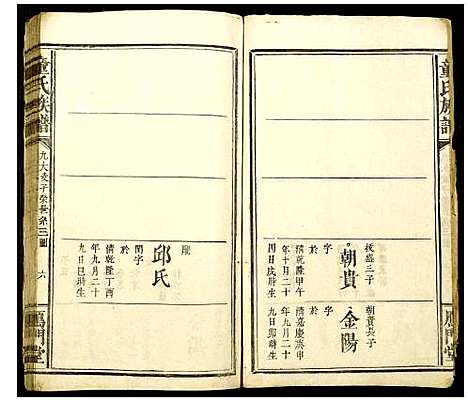 童氏族譜
雁門堂
扳盛三子
朝貴
字
於
清乾隆甲午
年十月二十
四日戌時生
朝貴長子
金陽
字
於
清嘉慶庚申
年九月二十
九日卯時生
配
邱氏
閏字
於
清乾隆丁酉
年九月二十
九日巳時生
童氏族譜
九大支子榮長系三圖
六
雁門堂